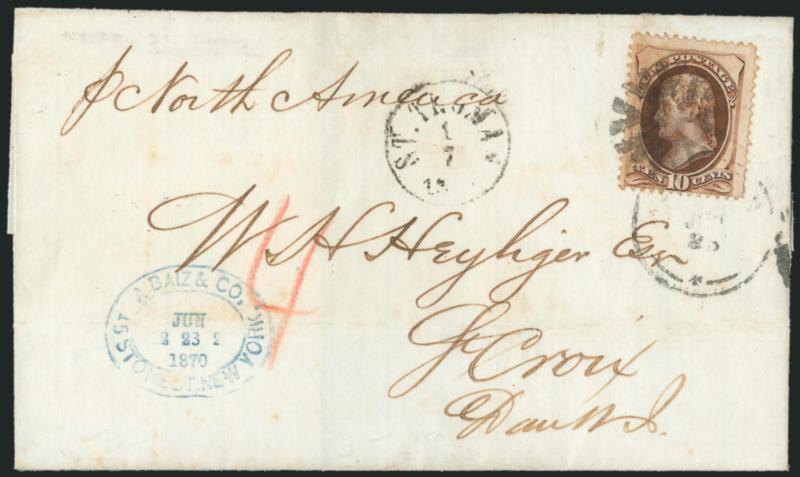 p North America
ST. THOMAS
1
7
U.S. POSTAGE
TEN 10 CENTS
JUN
23
W H Heyliger Esr
St Croix
Dan W I.
4
A. BAIZ & CO.
JUN
2 23 2
1870
STONE ST. NEW YORK